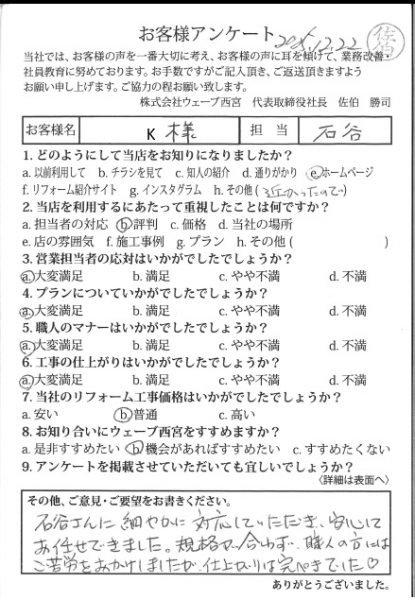 お客様アンケート 2025.12.22
当社では、お客様の声を一番大切に考え、お客様の声に耳を傾けて、業務改善・
社員教育に努めております。お手数ですがご記入頂き、ご返送頂きますよう
お願い申し上げます。ご協力の程お願い致します。
株式会社ウェーブ西宮 代表取締役社長 佐伯 勝司
お客様名 K 様 担当 石谷
1. どのようにして当店をお知りになりましたか?
a. 以前利用して b. チラシを見て c. 知人の紹介 d. 通りがかり e. ホームページ
f. リフォーム紹介サイト g. インスタグラム h. その他 ( 近かったので )
2. 当店を利用するにあたって重視したことは何ですか?
a. 担当者の対応 b. 評判 c. 価格 d. 当社の場所
e. 店の雰囲気 f. 施工事例 g. プラン h. その他 ( )
3. 営業担当者の応対はいかがでしたでしょうか?
a. 大変満足 b. 満足 c. やや不満 d. 不満
4. プランについていかがでしたでしょうか?
a. 大変満足 b. 満足 c. やや不満 d. 不満
5. 職人のマナーはいかがでしたでしょうか?
a. 大変満足 b. 満足 c. やや不満 d. 不満
6. 工事の仕上がりはいかがでしたでしょうか?
a. 大変満足 b. 満足 c. やや不満 d. 不満
7. 当社のリフォーム工事価格はいかがでしたでしょうか?
a. 安い b. 普通 c. 高い
8. お知り合いにウェーブ西宮をすすめますか?
a. 是非すすめたい b. 機会があればすすめたい c. すすめたくない
9. アンケートを掲載させていただいても宜しいでしょうか?
〈詳細は表面へ〉
その他、ご意見・ご要望をお書きください。
石谷さんに細やかに対応していただき、安心して
お任せできました。規格が合わず、職人の方には
ご苦労をおかけしましたが、仕上がりは完ぺきでした♡
ありがとうございました。